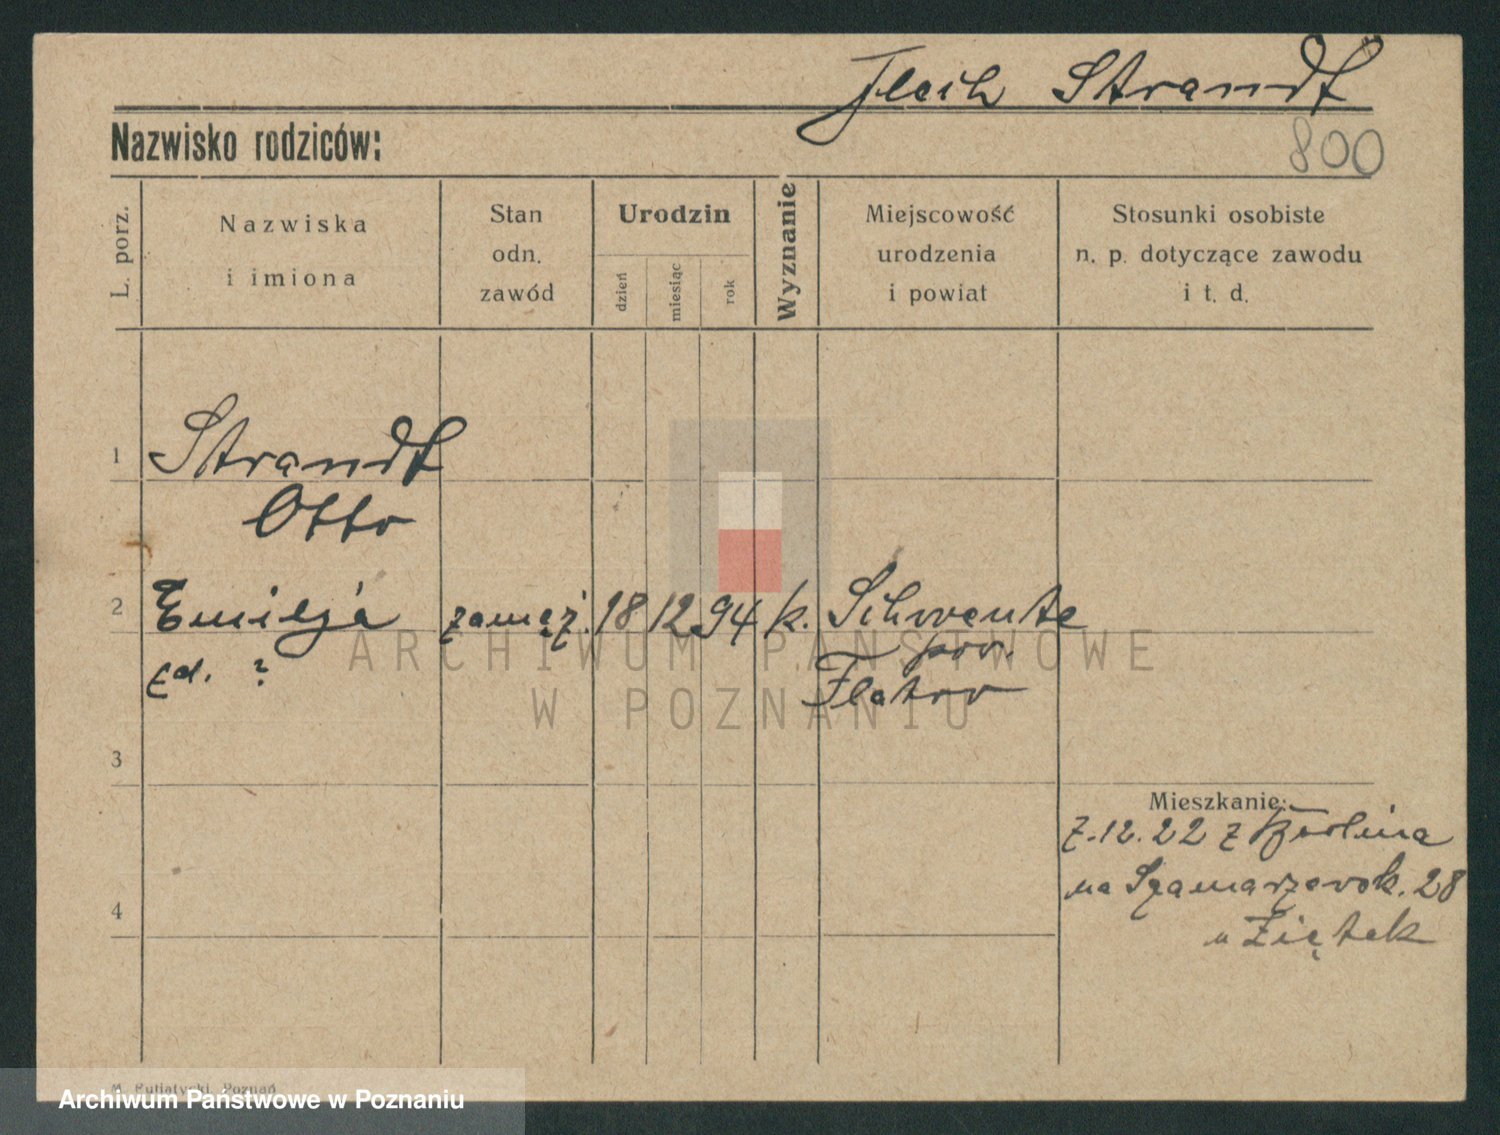 Strandt
800
Nazwisko rodziców:
L. porz.
Nazwiska
i imiona
Stan
odn.
zawód
Urodzin
dzień
miesiąc
rok
Wyznanie
Miejscowość
urodzenia
i powiat
Stosunki osobiste
n. p. dotyczące zawodu
i t. d.
1
Strandt
Otto
2
Emilja
zamęż. 18 12 94 k.
Schwente
pow.
Flatow
?
3
4
Mieszkanie:
7.12.22 z Berlina
na Szamarzewsk. 28
u Ziętek
ARCHIWUM PAŃSTWOWE
W POZNANIU
M. Putiatycki, Poznań
Archiwum Państwowe w Poznaniu